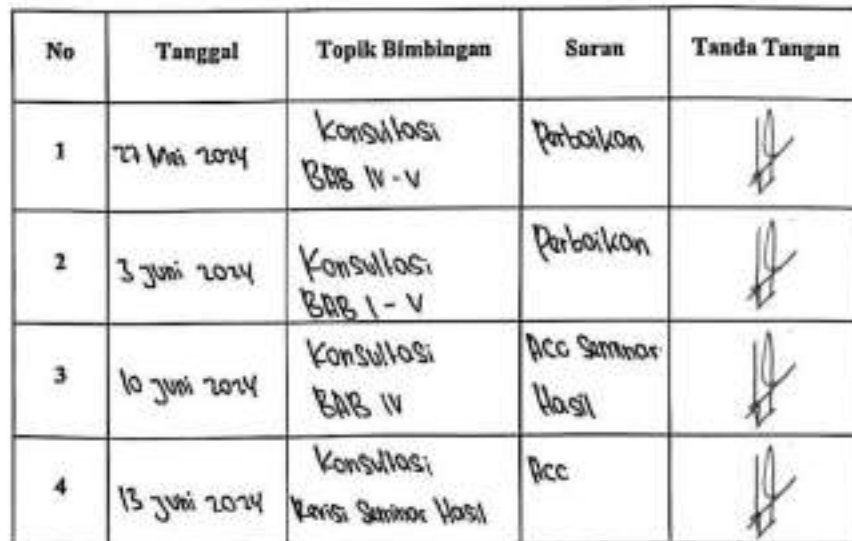 No Tanggal Topik Bimbingan Saran Tanda Tangan
1 27 Mei 2024 Konsultasi BAB IV - V Perbaikan
2 3 Juni 2024 Konsultasi BAB I - V Perbaikan
3 10 Juni 2024 Konsultasi BAB IV Acc Seminar Hasil
4 13 Juni 2024 Konsultasi Revisi Seminar Hasil Acc